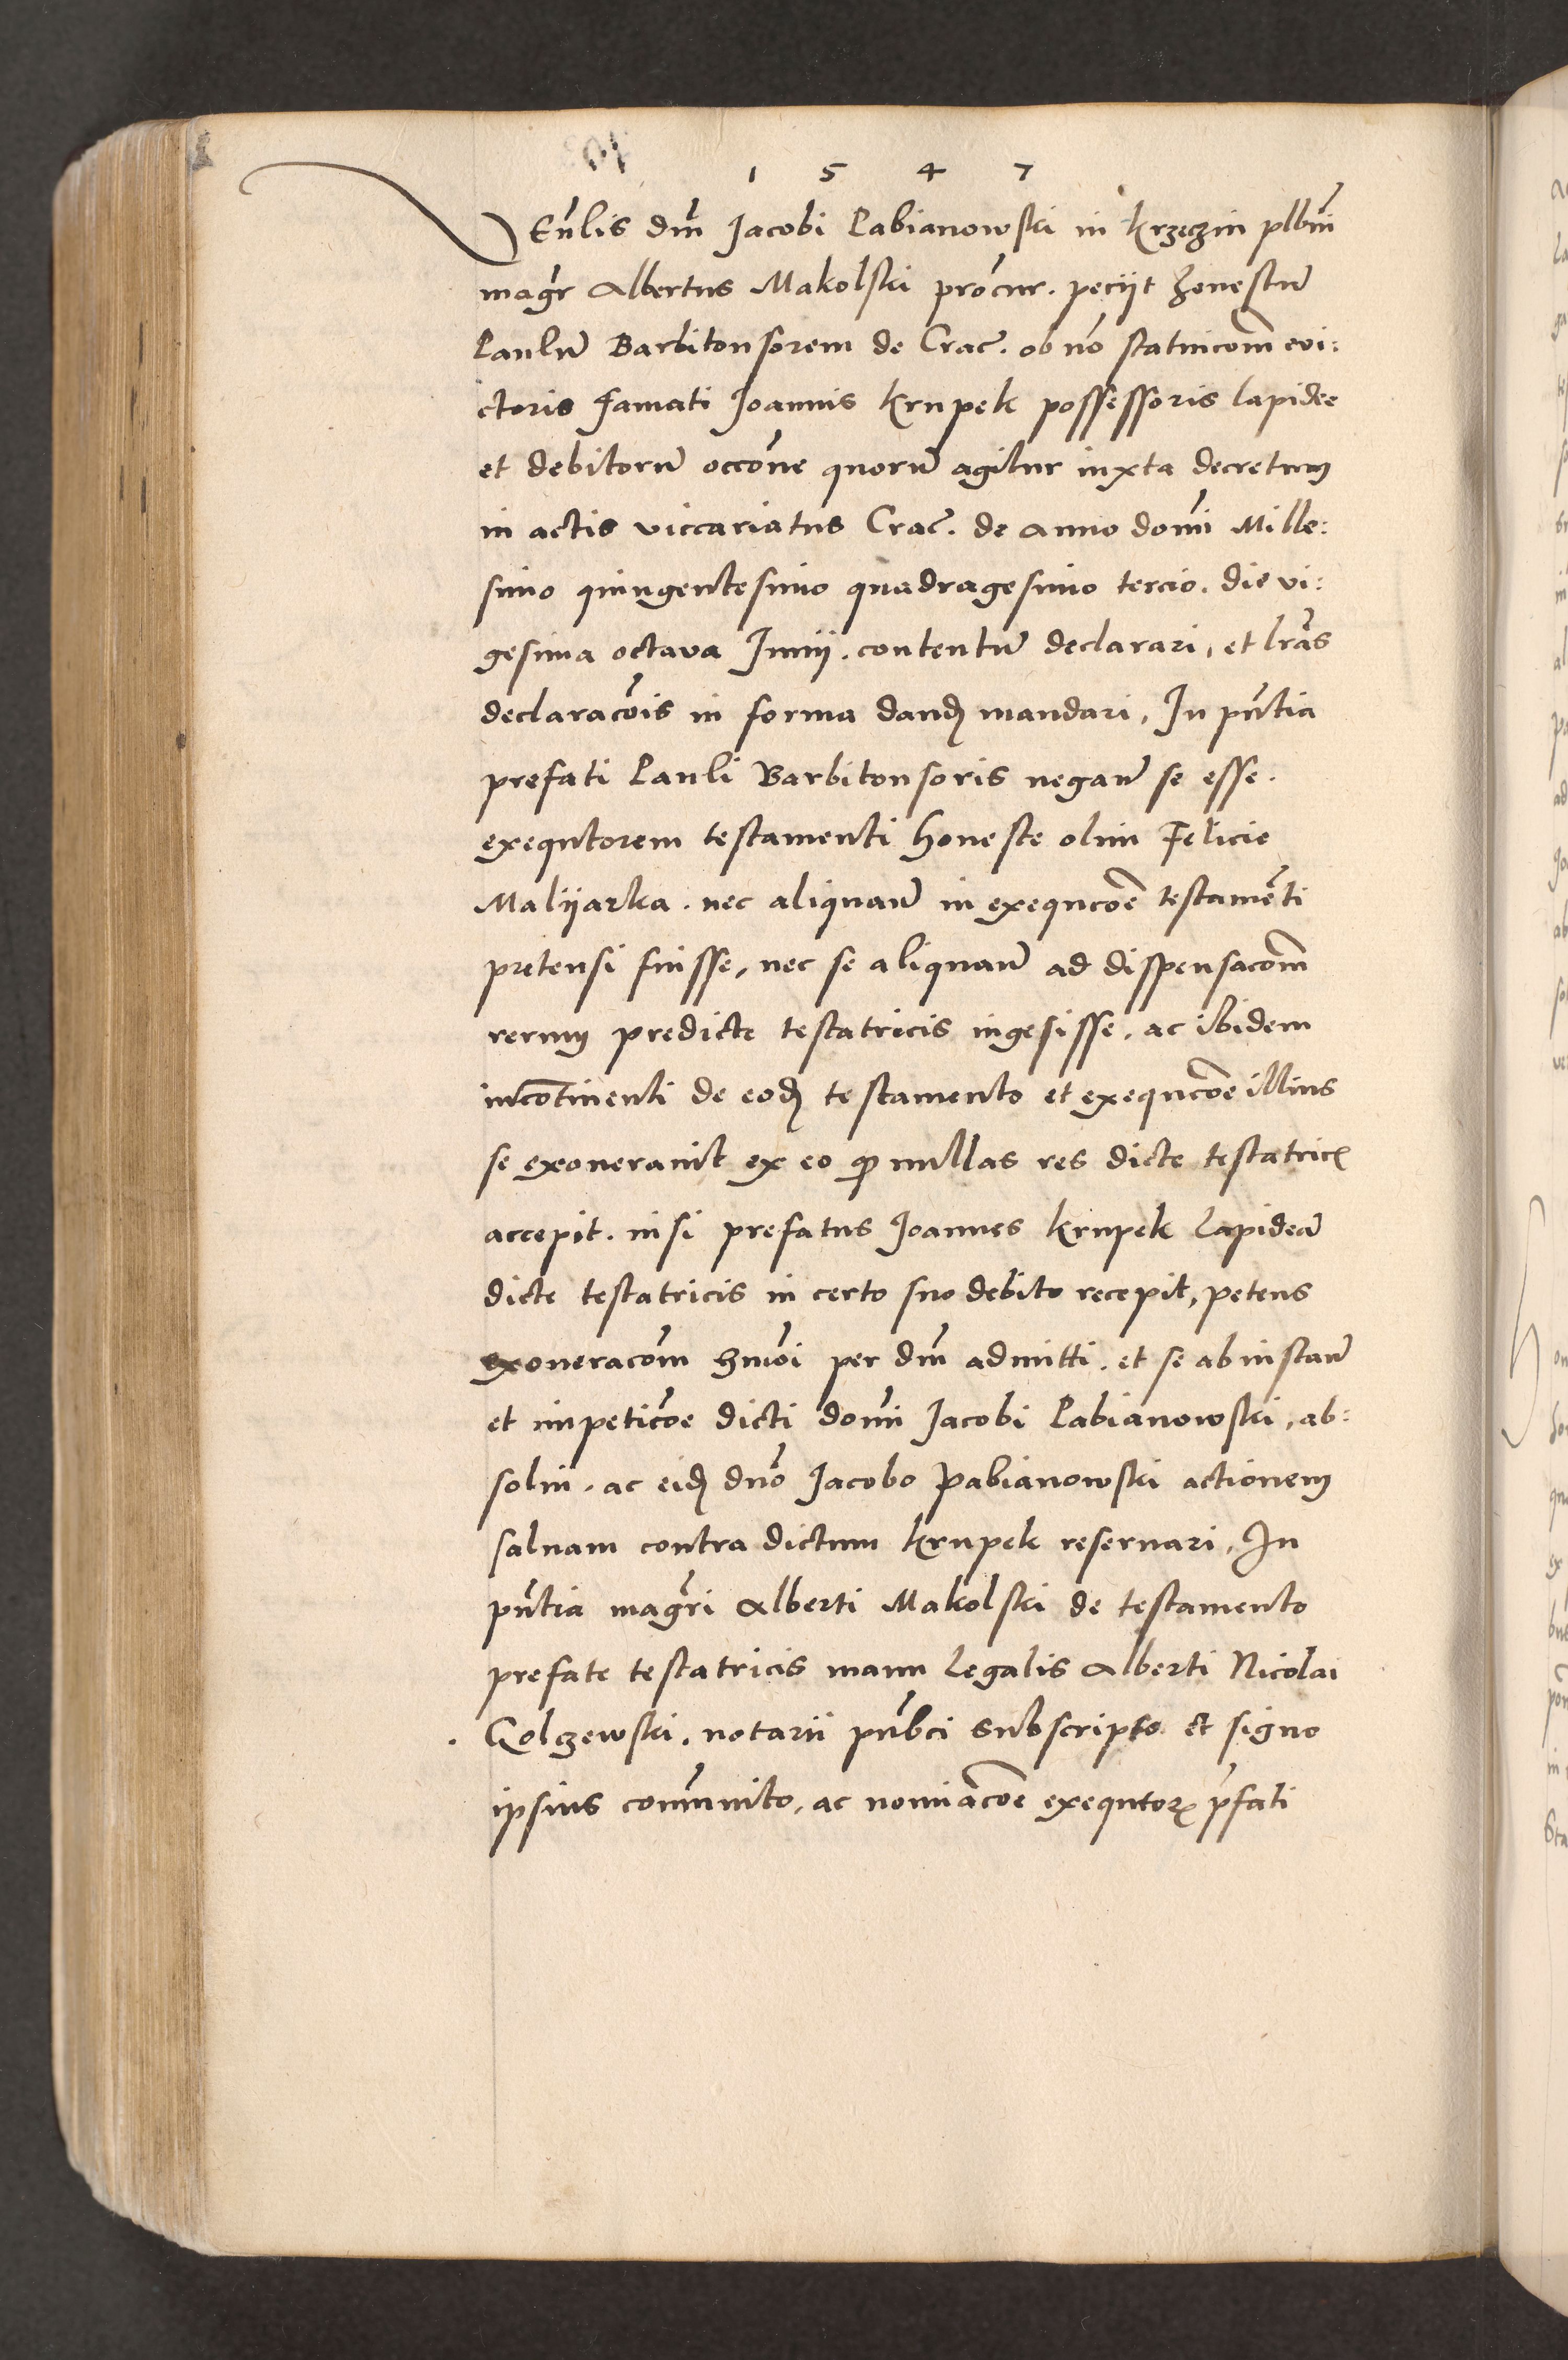 1 5 4 7
Vēnlis dm̄ Jacobi Pabianowski in Krzeczin plbm̄
magr̄ Albertus Makolski procur. peciit honestū
Paulū Barbitonsorem de Crac̄. ob nō statuicōm evi:
ctoris famati Joannis Krupek possessoris lapidee
et debitorū occōne quorū agitur iuxta decretum
in actis viccariatus Crac̄. de anno domī Mille:
simo quingentesimo quadragesimo tercio. die vi:
gesima octava Junij. contentū declarari, et lrās
declaracōis in forma dand̄ mandari, In pn̄tia
prefati Pauli Barbitonsoris negan̄ se esse.
exequtorem testamenti honeste olim Felicie
Malijarka. nec aliquan̄ in exequcōe testamēti
pretensi fuisse, nec se aliquan̄ ad dispensacōm
rerum predicte testatricis ingesisse, ac ibidem
incōtinenti de eod̄ testamento et exequcōe illius
se exoneravit ex eo qꝫ nullas res dicte testatric̄
accepit. nisi prefatus Joannes Krupek lapideā
dicte testatricis in certo suo debito recepit, petens
exoneracōm hmōi per dm̄ admitti. et se ab instan̄
et impeticōe dicti domī Jacobi Pabianowski, ab:
solui. ac eid̄ dnō Jacobo Pabianowski actionem
saluam contra dictum Krupek reseruari, In
pn̄tia magr̄i Alberti Makolski de testamento
prefate testatricis manu legalis Alberti Nicolai
Golczewski. notarii pūbci subscripto et signo
ipsius com̄unito, ac nomiacōe exequtorꝫ p̄fati